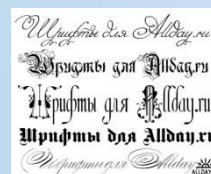 Шрифты для Allday.ru
Шрифты для Allday.ru
Шрифты для Allday.ru
Шрифты для Allday.ru
Шрифты для Allday
ALLDAY